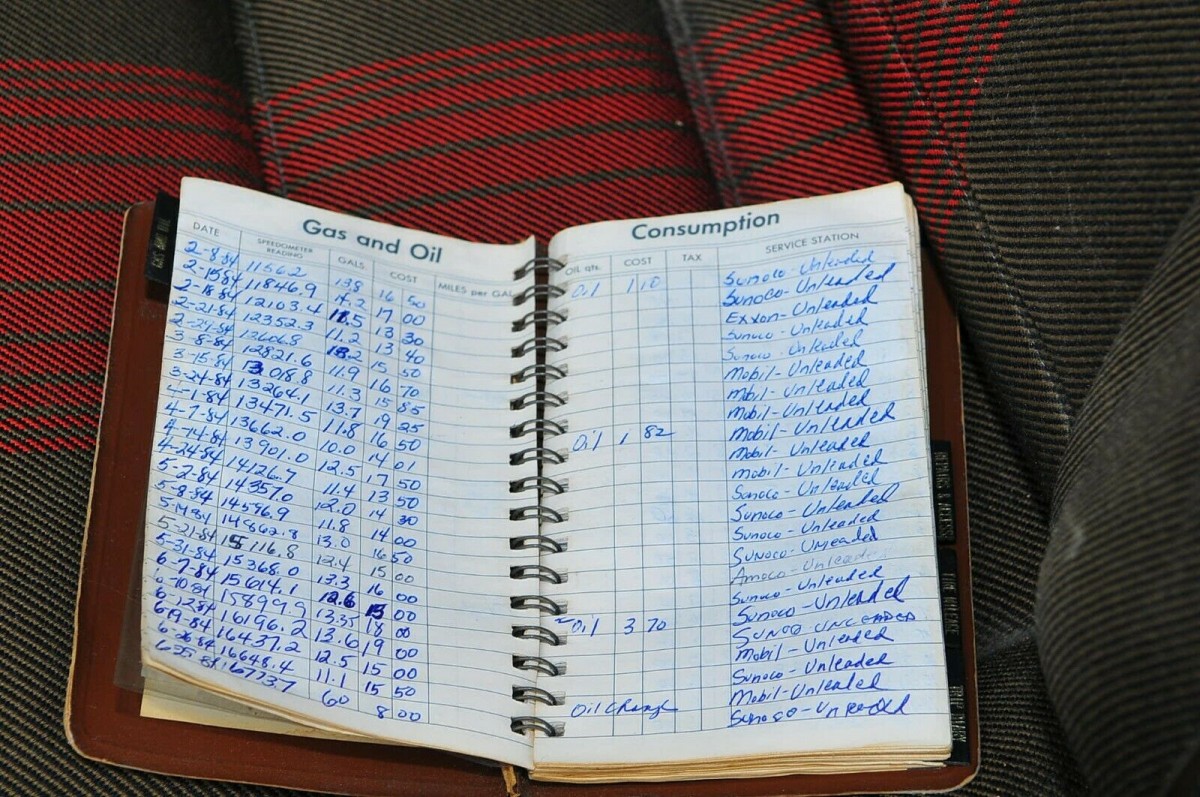 Gas and Oil Consumption
DATE SPEEDOMETER READING GALS COST MILES per GAL OIL qts. COST TAX SERVICE STATION
2-8-84 11562 138 16 50 Oil 1 10 Sunoco-Unleaded
2-15-84 11846.9 14.2 17 00 Sunoco-Unleaded
2-18-84 12103.4 11.5 13 30 Exxon-Unleaded
2-21-84 12352.3 11.2 13 40 Sunoco-Unleaded
2-27-84 12606.8 15 50 Sunoco-Unleaded
3-8-84 12821.6 11.9 16 70 Mobil-Unleaded
3-15-84 13018.8 11.3 15 85 Mobil-Unleaded
3-24-84 13264.1 13.7 19 25 Mobil-Unleaded
4-1-84 13471.5 11.8 16 50 Oil 1 82 Mobil-Unleaded
4-7-84 13662.0 10.0 14 01 Mobil-Unleaded
4-14-84 13901.0 12.5 17 50 Mobil-Unleaded
4-24-84 14126.7 11.4 13 50 Sunoco-Unleaded
5-2-84 14357.0 12.0 14 30 Sunoco-Unleaded
5-8-84 14596.9 11.8 14 00 Sunoco-Unleaded
14862.8 13.0 16 50 Sunoco-Unleaded
5-21-84 15116.8 12.4 15 00 Amoco-Unleaded
5-31-84 15368.0 13.3 16 00 Sunoco-Unleaded
6-7-84 15614.1 12.6 00 Sunoco-Unleaded
6-10-84 15899.9 13.35 18 00 Oil 3 70 SUNOCO UNLEADED
6-12-84 16196.2 13.6 19 00 Mobil-Unleaded
6-19-84 16437.2 12.5 15 00 Sunoco-Unleaded
6-26-84 16648.4 11.1 15 50 Mobil-Unleaded
16773.7 60 8 00 Oil Change Sunoco-Unleaded